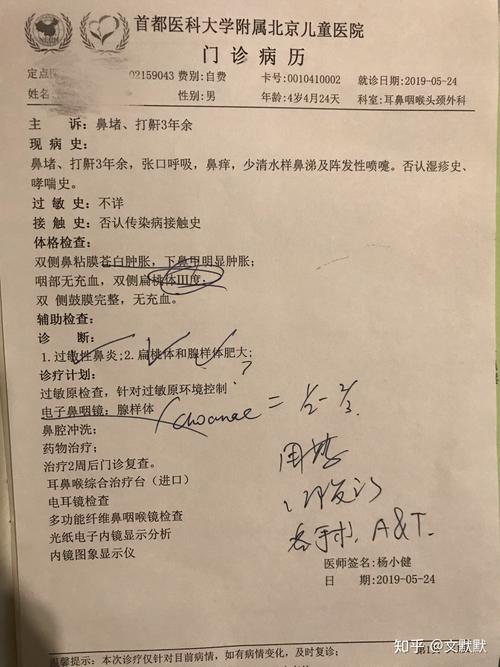 首都医科大学附属北京儿童医院
门诊病历
定点医 02159043 费别:自费 卡号:0010410002 就诊日期:2019-05-24
姓名: 性别:男 年龄:4岁4月24天 科室:耳鼻咽喉头颈外科
主 诉: 鼻堵、打鼾3年余
现 病 史:
鼻堵、打鼾3年余，张口呼吸，鼻痒，少清水样鼻涕及阵发性喷嚏。否认湿疹史、
哮喘史。
过 敏 史: 不详
接 触 史: 否认传染病接触史
体格检查:
双侧鼻粘膜苍白肿胀，下鼻甲明显肿胀;
咽部无充血，双侧扁桃体Ⅲ度;
双 侧鼓膜完整，无充血。
辅助检查:
诊 断:
1.过敏性鼻炎;2.扁桃体和腺样体肥大;
?
诊疗计划:
过敏原检查，针对过敏原环境控制
电子鼻咽镜:腺样体/choanae = 1/2-2/3.
鼻腔冲洗:
药物治疗:
治疗2周后门诊复查。
耳鼻喉综合治疗台（进口）
电耳镜检查
多功能纤维鼻咽喉镜检查
光纸电子内镜显示分析
内镜图象显示仪
手术. A&T.
医师签名:杨小健
日 期:2019-05-24
温馨提示: 本次诊疗仅针对目前病情，如有病情变化，及时复诊;
知乎 @文默默